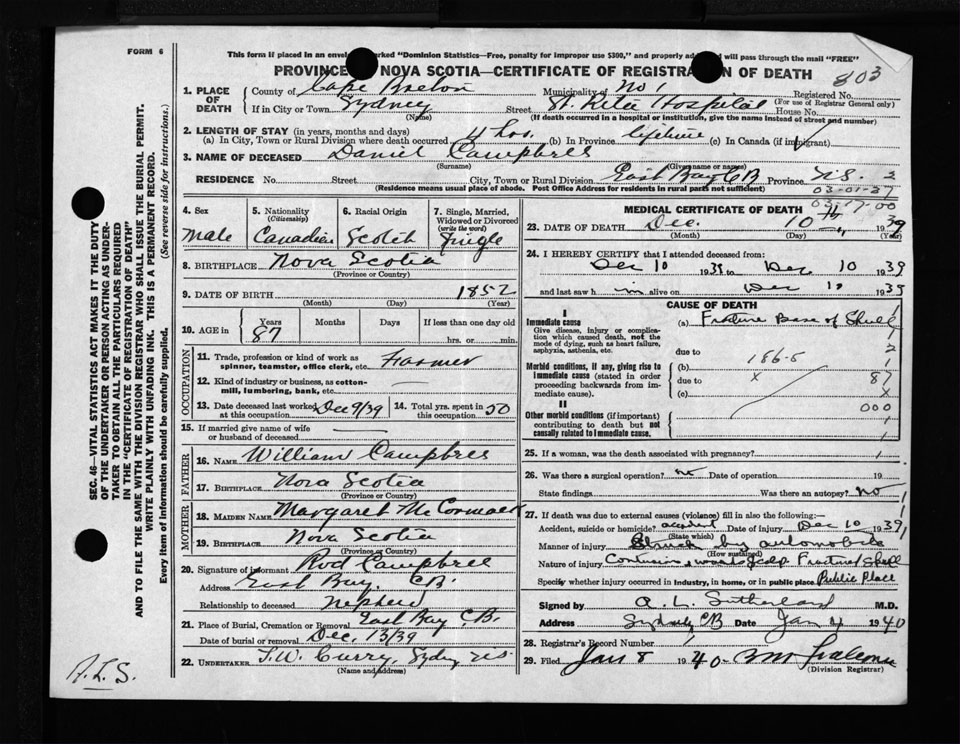 FORM 6
This form if placed in an envelope marked "Dominion Statistics—Free, penalty for improper use $300," and properly addressed will pass through the mail "FREE"
PROVINCE OF NOVA SCOTIA—CERTIFICATE OF REGISTRATION OF DEATH
803
1. PLACE OF DEATH County of Cape Breton Municipality of No 1 Registered No.
If in City or Town Sydney Street St. Rita Hospital House No. (For use of Registrar General only)
(Name) (If death occurred in a hospital or institution, give the name instead of street and number)
2. LENGTH OF STAY (in years, months and days)
(a) In City, Town or Rural Division where death occurred 4 hrs. (b) In Province lifetime (c) In Canada (if immigrant)
3. NAME OF DECEASED Daniel Campbell
(Surname) (Given name or names)
RESIDENCE No. Street City, Town or Rural Division East Bay CB Province N.S. 2
(Residence means usual place of abode. Post Office Address for residents in rural parts not sufficient)
03-01-27
03-17-00
4. Sex Male
5. Nationality (Citizenship) Canadian
6. Racial Origin Scotch
7. Single, Married, Widowed or Divorced (write the word) Single
8. BIRTHPLACE Nova Scotia
(Province or Country)
9. DATE OF BIRTH 1852
(Month) (Day) (Year)
10. AGE in Years Months Days If less than one day old
87 hrs. or min.
OCCUPATION
11. Trade, profession or kind of work as spinner, teamster, office clerk, etc. Farmer
12. Kind of industry or business, as cotton-mill, lumbering, bank, etc. —
13. Date deceased last worked at this occupation Dec 9/39 14. Total yrs. spent in this occupation 50
15. If married give name of wife or husband of deceased —
FATHER
16. NAME William Campbell
17. BIRTHPLACE Nova Scotia
(Province or Country)
MOTHER
18. MAIDEN NAME Margaret McCormack
19. BIRTHPLACE Nova Scotia
(Province or Country)
20. Signature of informant Rod Campbell
Address East Bay CB.
Relationship to deceased Nephew
21. Place of Burial, Cremation or Removal East Bay CB.
Date of burial or removal Dec. 13/39
22. UNDERTAKER T.W. Curry, Sydney N.S.
(Name and address)
MEDICAL CERTIFICATE OF DEATH
23. DATE OF DEATH Dec. 10th 1939
(Month) (Day) (Year)
24. I HEREBY CERTIFY that I attended deceased from:
Dec 10 1939 to Dec 10 1939
and last saw him alive on Dec 10 1939
CAUSE OF DEATH
I
Immediate cause (a) Fracture Base of Skull
Give disease, injury or complication which caused death, not the mode of dying, such as heart failure, asphyxia, asthenia, etc.
due to 1
186-5 2
Morbid conditions, if any, giving rise to immediate cause (stated in order proceeding backwards from immediate cause). (b) 1
due to x 87
(c) x
II 000
Other morbid conditions (if important) contributing to death but not causally related to immediate cause. 1
1
25. If a woman, was the death associated with pregnancy? 1
26. Was there a surgical operation? no Date of operation 19
State findings Was there an autopsy? no
27. If death was due to external causes (violence) fill in also the following:—
Accident, suicide or homicide? accident Date of injury Dec 10 1939
(State which)
Manner of injury Struck by automobile
(How sustained)
Nature of injury Contusions, wound scalp Fractured Skull
Specify whether injury occurred in industry, in home, or in public place Public Place
Signed by A. L. Sutherland M.D.
Address Sydney CB Date Jan 4 1940
28. Registrar's Record Number 1
29. Filed Jan 8 1940
(Division Registrar)
SEC. 46—VITAL STATISTICS ACT MAKES IT THE DUTY
OF THE UNDERTAKER OR PERSON ACTING AS UNDER-
TAKER TO OBTAIN ALL THE PARTICULARS REQUIRED
IN THE "CERTIFICATE OF REGISTRATION OF DEATH"
AND TO FILE THE SAME WITH THE DIVISION REGISTRAR WHO SHALL ISSUE THE BURIAL PERMIT.
WRITE PLAINLY WITH UNFADING INK. THIS IS A PERMANENT RECORD.
Every item of information should be carefully supplied. (See reverse side for instructions.)
A.L.S.